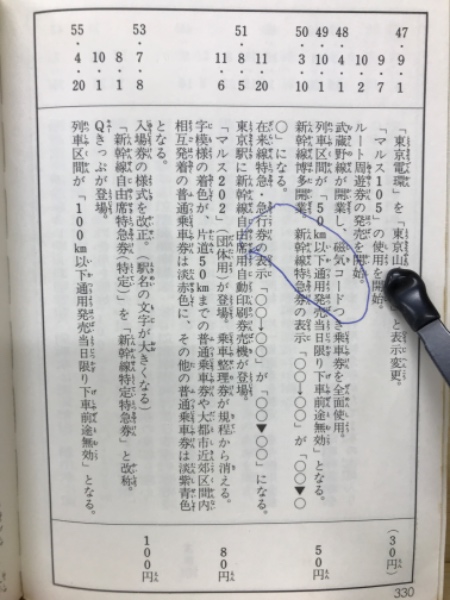 47・9・1 「東京電環」を「東京山 と表示変更。 （30円）
9・7 「マルス105」の使用を開始。
10・2 ルート周遊券の発売を開始。
48・4・1 武蔵野線が開業し、磁気コードつき乗車券を全面使用。
49・10・1 列車区間が「50km以下通用発売当日限り下車前途無効」となる。 50円
50・3・10 新幹線博多開業。新幹線特急券の表示「○○→○○」が「○○▼○
○」になる。
11・20 在来線特急・急行券の表示「○○→○○」が「○○▼○○」になる。
51・8・5 東京駅に新幹線自由席用自動印刷券売機が登場。
11・6 「マルス202」（団体用）が登場。乗車整理券が規程から消える。 80円
字模様の着色が、片道50kmまでの普通乗車券や大都市近郊区間内
相互発着の普通乗車券は淡赤色に、その他の普通乗車券は淡紫青色
となる。
53・7・8 入場券の様式を改正。（駅名の文字が大きくなる） 100円
8・1 「新幹線自由席特急券（特定）」を「新幹線特定特急券」と改称。
10・1 Qきっぷが登場。
55・4・20 列車区間が「100km以下通用発売当日限り下車前途無効」となる。
330